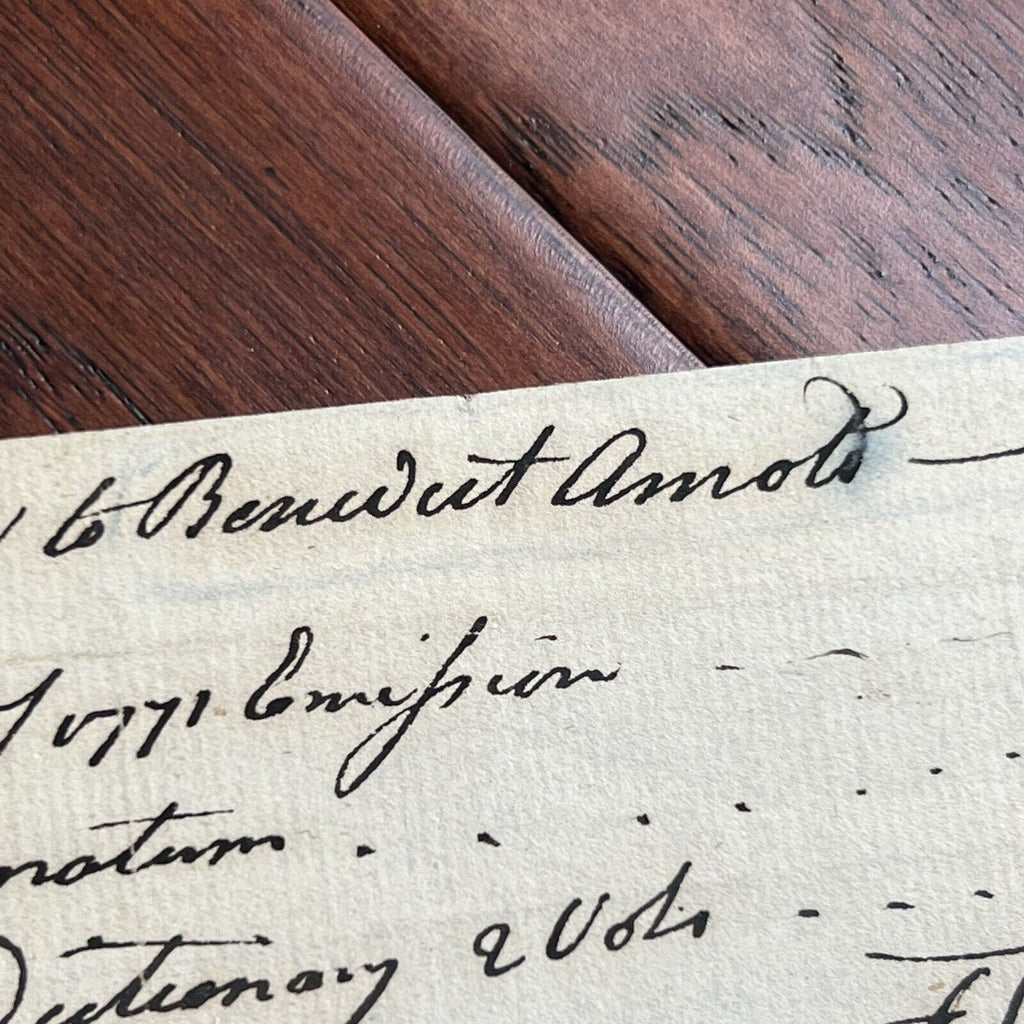 to Benedict Arnold —
1771 Emission - -
. . . . . .
Dictionary 2 Vols - - -